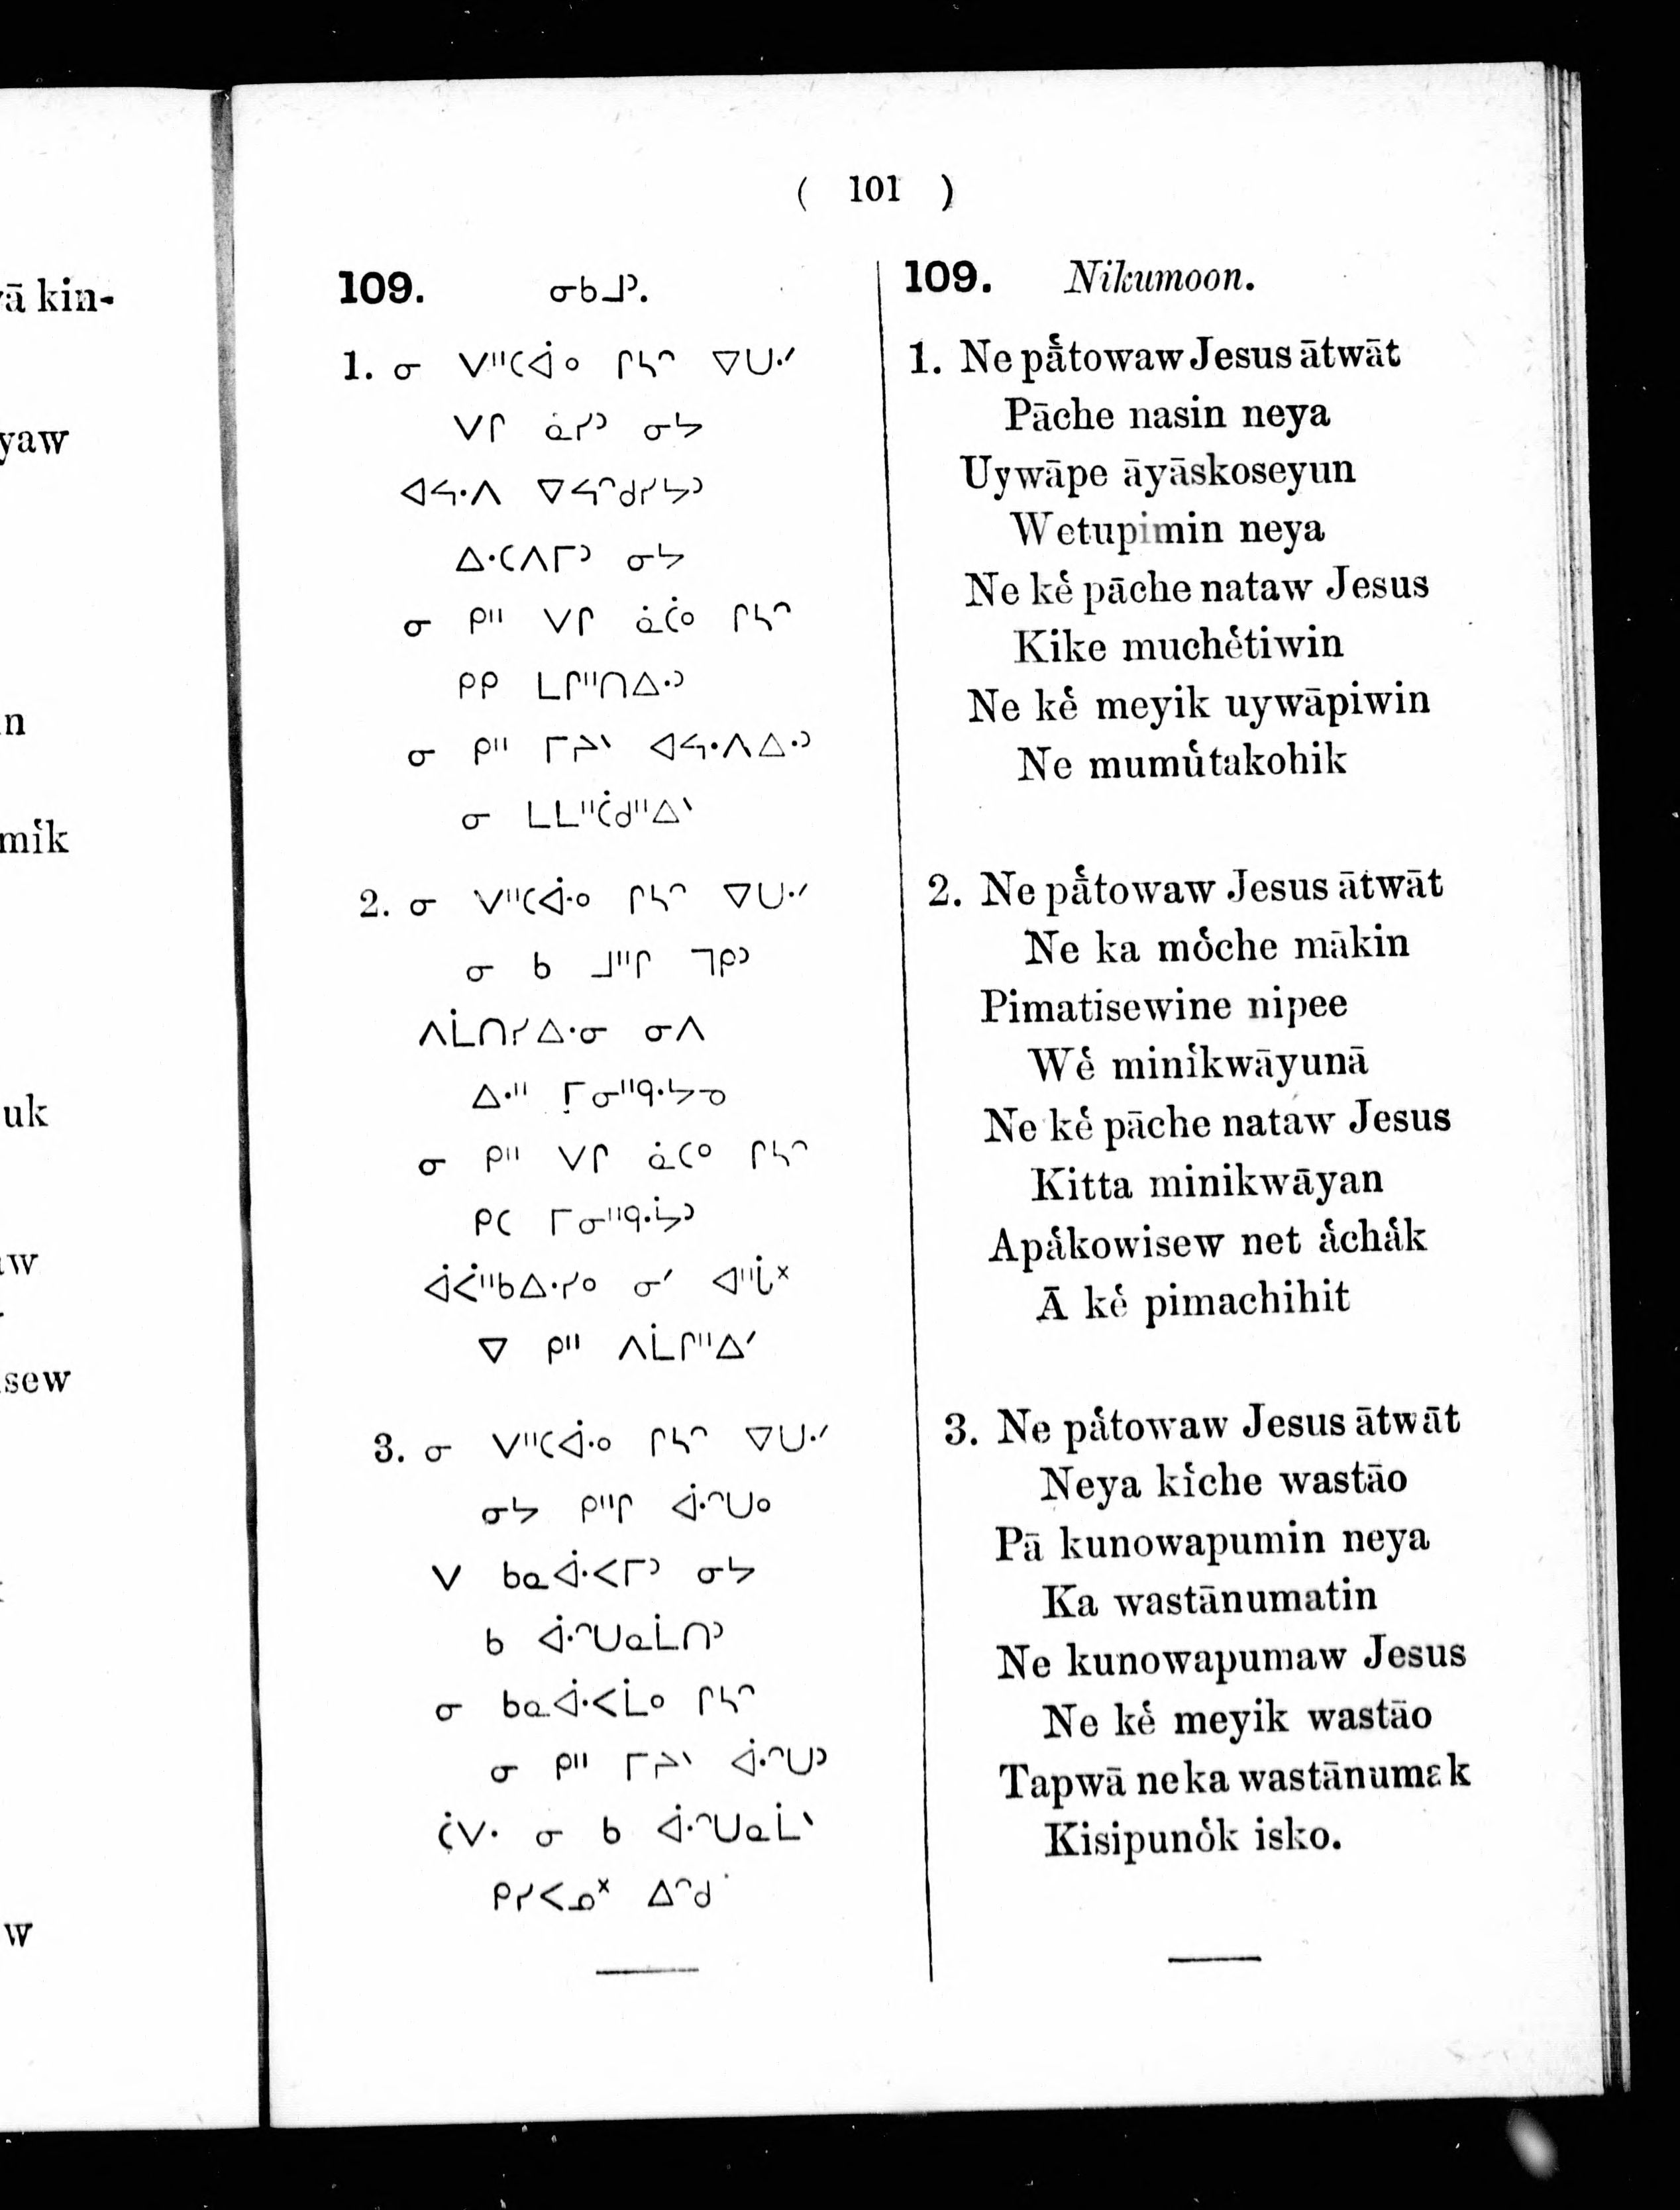 ā kin-
yaw
n
mik
uk
w
sew
w
( 101 )
109. ᓂᑲᒧᐣ.
1. ᓂ ᐯᐦᑕᐚᐤ ᒋᓴᐢ ᐁᑌᐧᐟ
ᐯᒋ ᓈᓯᐣ ᓂᔭ
ᐊᔦᐧᐱ ᐁᔦᐢᑯᓯᔭᐣ
ᐃᐧᑕᐱᒥᐣ ᓂᔭ
ᓂ ᑭᐦ ᐯᒋ ᓈᑖᐤ ᒋᓴᐢ
ᑭᑭ ᒪᒋᐦᑎᐃᐧᐣ
ᓂ ᑭᐦ ᒥᔨᐠ ᐊᔦᐧᐱᐃᐧᐣ
ᓂ ᒪᒪᐦᑖᑯᐦᐃᐠ
2. ᓂ ᐯᐦᑕᐋᐧᐤ ᒋᓴᐢ ᐁᑌᐧᐟ
ᓂ ᑲ ᒧᐦᒋ ᒣᑭᐣ
ᐱᒫᑎᓯᐃᐧᓂ ᓂᐱ
ᐃᐧᐦ ᒥᓂᐦᑫᐧᔭᓀ
ᓂ ᑭᐦ ᐯᒋ ᓈᑕᐤ ᒋᓴᐢ
ᑭᑕ ᒥᓂᐦᑫᐧᔮᐣ
ᐋᐹᐦᑲᐃᐧᓯᐤ ᓂᐟ ᐊᐦᒑᕽ
ᐁ ᑭᐦ ᐱᒫᒋᐦᐃᐟ
3. ᓂ ᐯᐦᑕᐋᐧᐤ ᒋᓴᐢ ᐁᑌᐧᐟ
ᓂᔭ ᑭᐦᒋ ᐋᐧᐢᑌᐤ
ᐯ ᑲᓇᐋᐧᐸᒥᐣ ᓂᔭ
ᑲ ᐋᐧᐢᑌᓇᒫᑎᐣ
ᓂ ᑲᓇᐋᐧᐸᒫᐤ ᒋᓴᐢ
ᓂ ᑭᐦ ᒥᔨᐠ ᐋᐧᐢᑌᐣ
ᑖᐯᐧ ᓂ ᑲ ᐋᐧᐢᑌᓇᒫᐠ
ᑭᓯᐸᓄᕽ ᐃᐢᑯ
109. Nikumoon.
1. Ne pā̒towaw Jesus ātwāt
Pāche nasin neya
Uywāpe āyāskoseyun
Wetupimin neya
Ne ke̒ pāche nataw Jesus
Kike muche̒tiwin
Ne ke̒ meyik uywāpiwin
Ne mumu̒takohik
2. Ne pā̒towaw Jesus ātwāt
Ne ka mo̒che mākin
Pimatisewine nipee
We̒ mini̒kwāyunā
Ne ke̒ pāche nataw Jesus
Kitta minikwāyan
Apa̒kowisew net a̒cha̒k
Ā ke̒ pimachihit
3. Ne pa̒towaw Jesus ātwāt
Neya ki̒che wastāo
Pā kunowapumin neya
Ka wastānumatin
Ne kunowapumaw Jesus
Ne ke̒ meyik wastāo
Tapwā ne ka wastānumak
Kisipuno̒k isko.